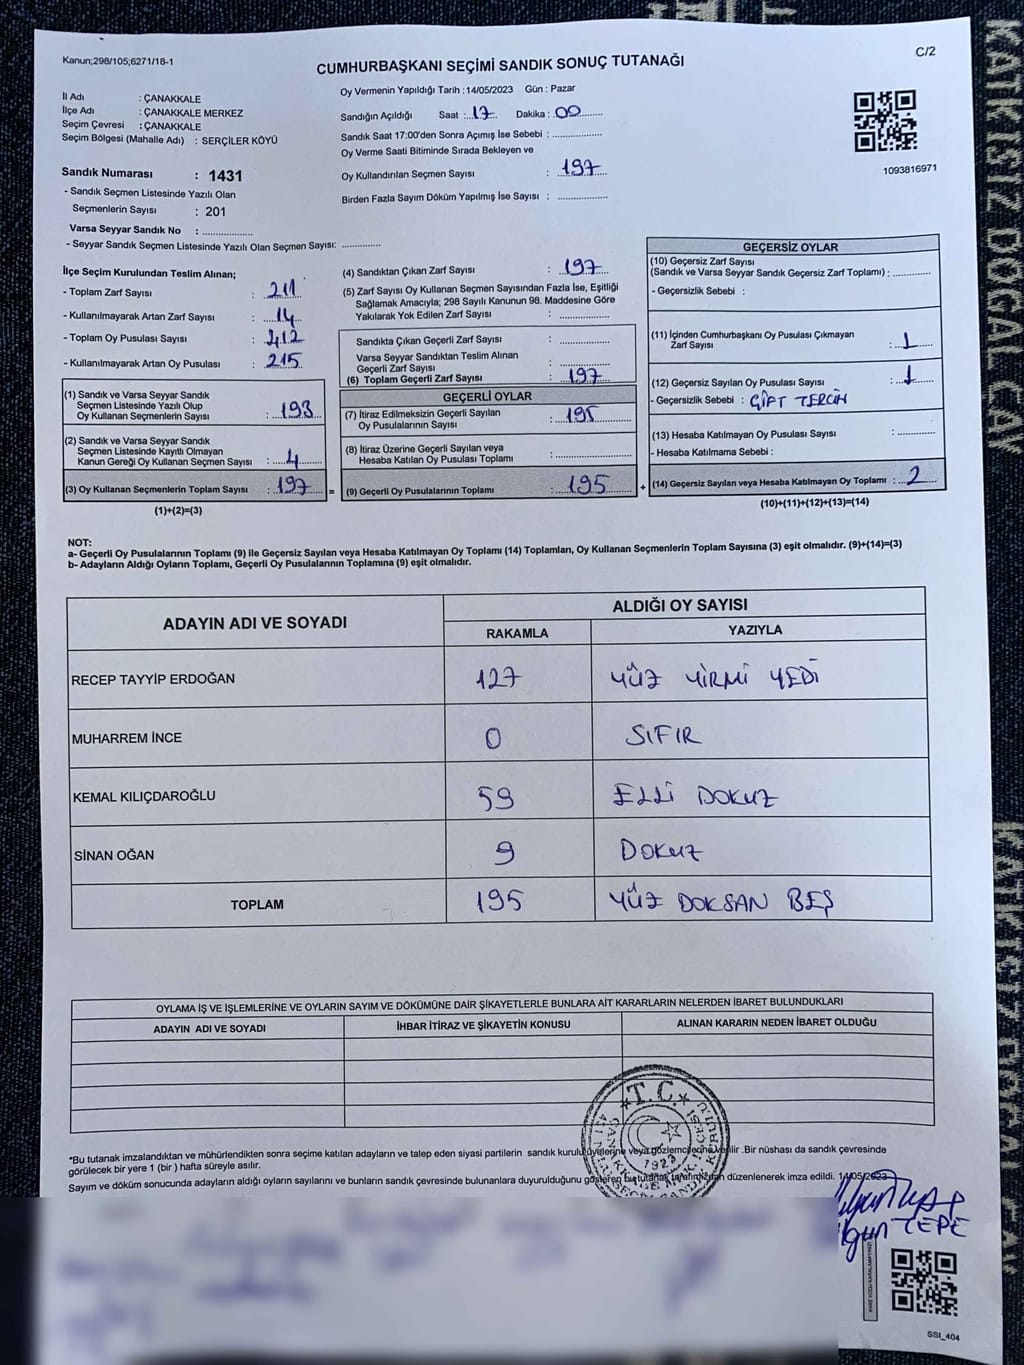 Kanun;298/105;6271/18-1
C/2
CUMHURBAŞKANI SEÇİMİ SANDIK SONUÇ TUTANAĞI
İl Adı : ÇANAKKALE
İlçe Adı : ÇANAKKALE MERKEZ
Seçim Çevresi : ÇANAKKALE
Seçim Bölgesi (Mahalle Adı) : SERÇİLER KÖYÜ
Sandık Numarası : 1431
- Sandık Seçmen Listesinde Yazılı Olan
Seçmenlerin Sayısı : 201
Varsa Seyyar Sandık No : ..............
- Seyyar Sandık Seçmen Listesinde Yazılı Olan Seçmen Sayısı: ..............
Oy Vermenin Yapıldığı Tarih :14/05/2023 Gün : Pazar
Sandığın Açıldığı Saat : 17 Dakika : 00
Sandık Saat 17:00'den Sonra Açımış İse Sebebi : ..............
Oy Verme Saati Bitiminde Sırada Bekleyen ve
Oy Kullandırılan Seçmen Sayısı : 197
Birden Fazla Sayım Döküm Yapılmış İse Sayısı : ..............
1093816971
İlçe Seçim Kurulundan Teslim Alınan;
- Toplam Zarf Sayısı : 211
- Kullanılmayarak Artan Zarf Sayısı : 14
- Toplam Oy Pusulası Sayısı : 412
- Kullanılmayarak Artan Oy Pusulası : 215
(1) Sandık ve Varsa Seyyar Sandık
Seçmen Listesinde Yazılı Olup
Oy Kullanan Seçmenlerin Sayısı : 193
(2) Sandık ve Varsa Seyyar Sandık
Seçmen Listesinde Kayıtlı Olmayan
Kanun Gereği Oy Kullanan Seçmen Sayısı : 4
(3) Oy Kullanan Seçmenlerin Toplam Sayısı : 197
(1)+(2)=(3)
(4) Sandıktan Çıkan Zarf Sayısı : 197
(5) Zarf Sayısı Oy Kullanan Seçmen Sayısından Fazla İse, Eşitliği
Sağlamak Amacıyla; 298 Sayılı Kanunun 98. Maddesine Göre
Yakılarak Yok Edilen Zarf Sayısı : ..............
Sandıkta Çıkan Geçerli Zarf Sayısı : ..............
Varsa Seyyar Sandıktan Teslim Alınan
Geçerli Zarf Sayısı : ..............
(6) Toplam Geçerli Zarf Sayısı : 197
=
GEÇERLİ OYLAR
(7) İtiraz Edilmeksizin Geçerli Sayılan
Oy Pusulalarının Sayısı : 195
(8) İtiraz Üzerine Geçerli Sayılan veya
Hesaba Katılan Oy Pusulası Toplamı : ..............
(9) Geçerli Oy Pusulalarının Toplamı : 195
+
GEÇERSİZ OYLAR
(10) Geçersiz Zarf Sayısı
(Sandık ve Varsa Seyyar Sandık Geçersiz Zarf Toplamı) : ..............
- Geçersizlik Sebebi :
(11) İçinden Cumhurbaşkanı Oy Pusulası Çıkmayan
Zarf Sayısı : 1
(12) Geçersiz Sayılan Oy Pusulası Sayısı : 1
- Geçersizlik Sebebi : ÇİFT TERCİH
(13) Hesaba Katılmayan Oy Pusulası Sayısı : ..............
- Hesaba Katılmama Sebebi :
(14) Geçersiz Sayılan veya Hesaba Katılmayan Oy Toplamı : 2
(10)+(11)+(12)+(13)=(14)
NOT:
a- Geçerli Oy Pusulalarının Toplamı (9) ile Geçersiz Sayılan veya Hesaba Katılmayan Oy Toplamı (14) Toplamları, Oy Kullanan Seçmenlerin Toplam Sayısına (3) eşit olmalıdır. (9)+(14)=(3)
b- Adayların Aldığı Oyların Toplamı, Geçerli Oy Pusulalarının Toplamına (9) eşit olmalıdır.
ADAYIN ADI VE SOYADI
ALDIĞI OY SAYISI
RAKAMLA YAZIYLA
RECEP TAYYİP ERDOĞAN 127 YÜZ YİRMİ YEDİ
MUHARREM İNCE 0 SIFIR
KEMAL KILIÇDAROĞLU 59 ELLİ DOKUZ
SİNAN OĞAN 9 DOKUZ
TOPLAM 195 YÜZ DOKSAN BEŞ
OYLAMA İŞ VE İŞLEMLERİNE VE OYLARIN SAYIM VE DÖKÜMÜNE DAİR ŞİKAYETLERLE BUNLARA AİT KARARLARIN NELERDEN İBARET BULUNDUKLARI
ADAYIN ADI VE SOYADI İHBAR İTİRAZ VE ŞİKAYETİN KONUSU ALINAN KARARIN NEDEN İBARET OLDUĞU
T.C.
1923
*Bu tutanak imzalandıktan ve mühürlendikten sonra seçime katılan adayların ve talep eden siyasi partilerin sandık kurulu üyelerine veya gözlemcilerine verilir .Bir nüshası da sandık çevresinde
görülecek bir yere 1 (bir ) hafta süreyle asılır.
Sayım ve döküm sonucunda adayların aldığı oyların sayılarını ve bunların sandık çevresinde bulunanlara duyurulduğunu gösteren bu tutanak tarafımızdan düzenlenerek imza edildi. 14/05/2023
TEPE
SSI_404
KATKISIZ DOĞAL ÇAY